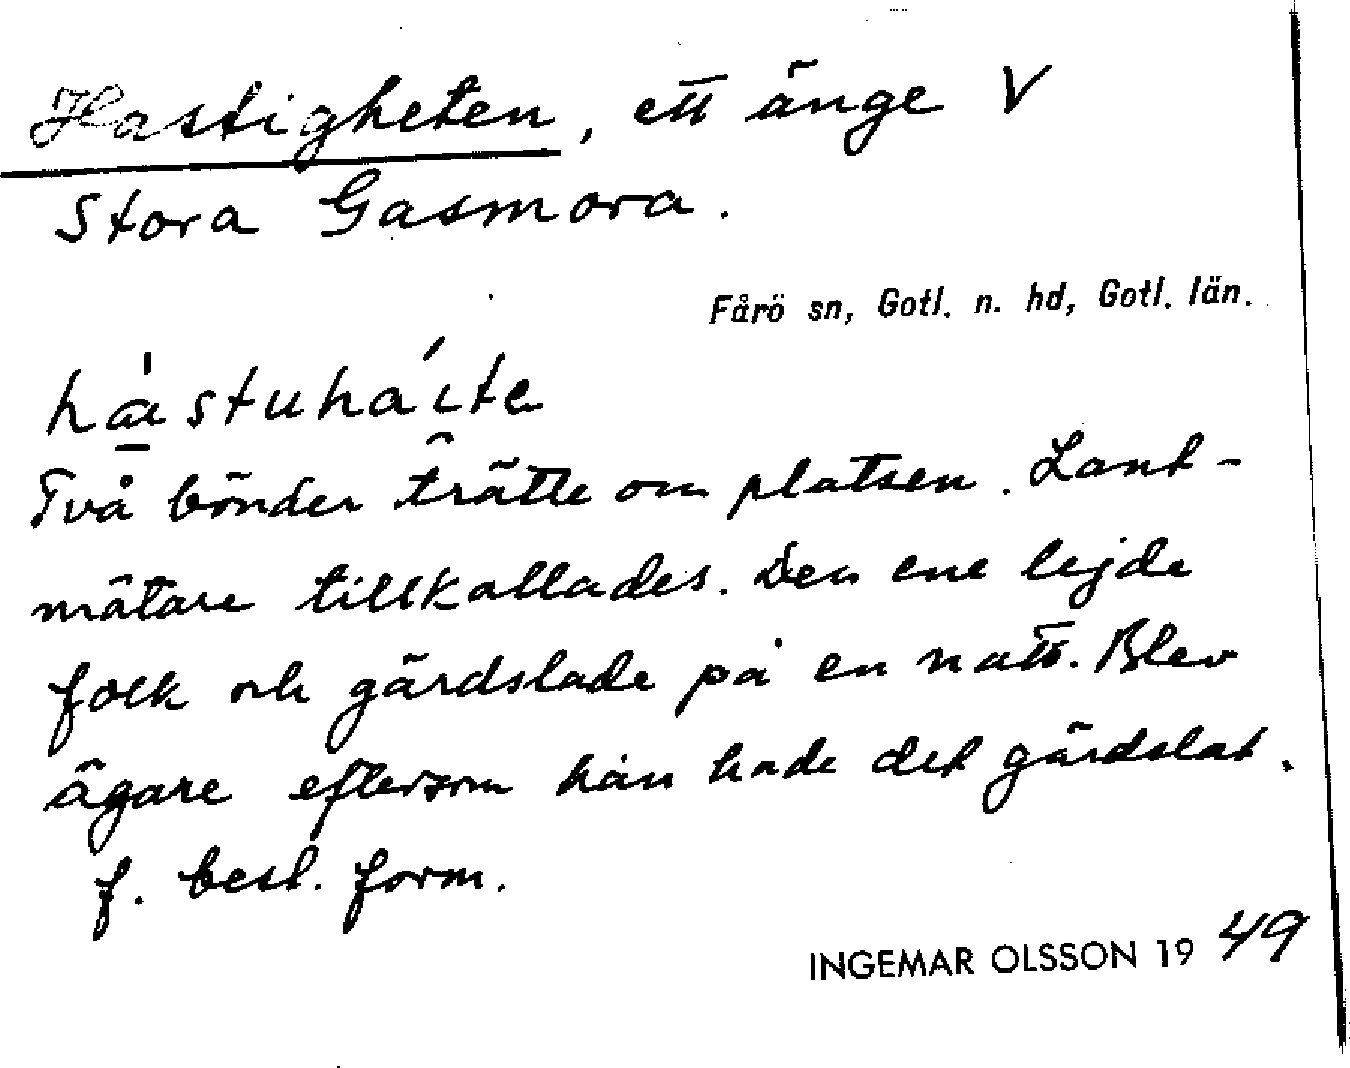 Hastigheten, ett änge V
Stora Gasmora.
Fårö sn, Gotl. n. hd, Gotl. län.
Två bönder trätte om platsen. Lant-
mätare tillkallades. Den ene lejde
folk och gärdslade på en natt. Blev
ägare eftersom han hade det gärdslat.
f. best. form.
INGEMAR OLSSON 1949